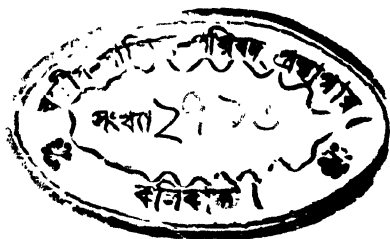 বঙ্গীয়-সাহিত্য-পরিষৎ গ্রন্থাগার
সংখ্যা
কলিকাতা।